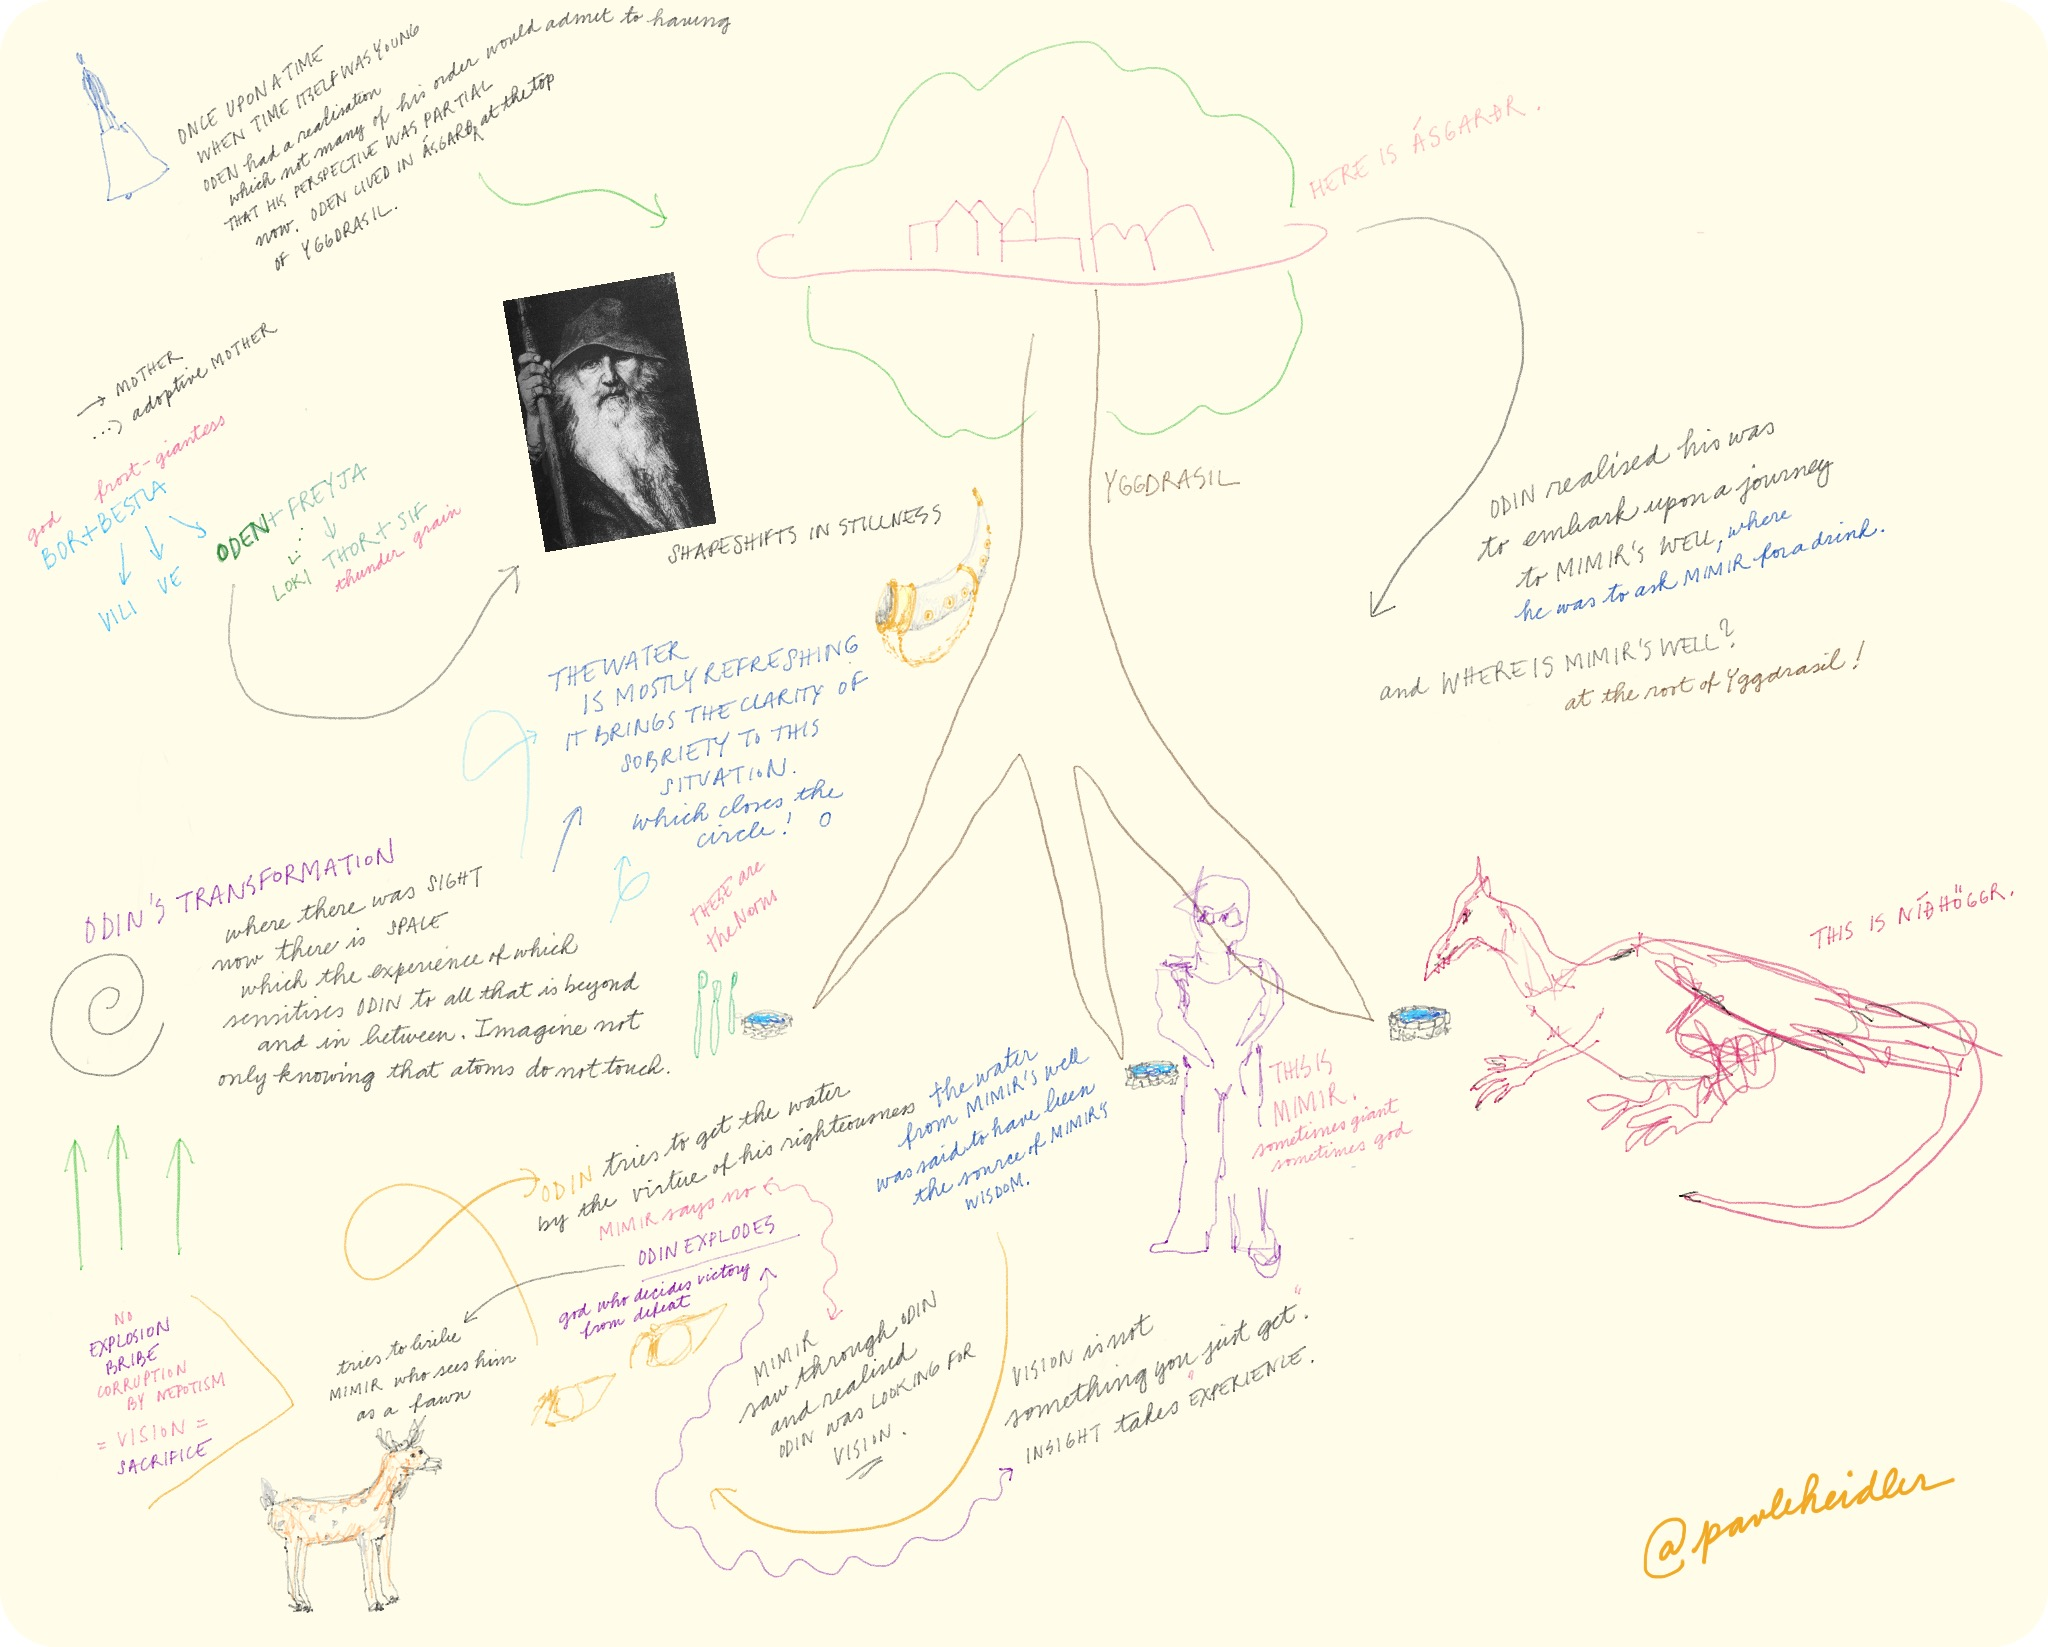 ONCE UPON A TIME
WHEN TIME ITSELF WAS YOUNG
ODEN had a realisation
which not many of his order would admit to having
THAT HIS PERSPECTIVE WAS PARTIAL
now. ODEN LIVED IN ÁSGARÐR at the top
OF YGGDRASIL.
HERE IS ÁSGARÐR.
→ MOTHER
...> adoptive MOTHER
god
frost-giantess
BOR + BESTLA
VILI
VE
ODEN + FREYJA
LOKI
THOR + SIF
thunder grain
SHAPESHIFTS IN STILLNESS
YGGDRASIL
ODIN realised his was
to embark upon a journey
to MIMIR'S WELL, where
he was to ask MIMIR for a drink.
and WHERE IS MIMIR'S WELL?
at the root of Yggdrasil!
THE WATER
IS MOSTLY REFRESHING
IT BRINGS THE CLARITY OF
SOBRIETY TO THIS
SITUATION.
which closes the
circle! O
ODIN'S TRANSFORMATION
where there was SIGHT
now there is SPACE
which the experience of which
sensitises ODIN to all that is beyond
and in between. Imagine not
only knowing that atoms do not touch.
THESE are
the Norns
THIS IS NÍÐHÖGGR.
THIS IS
MIMIR.
sometimes giant
sometimes god
the water
from MIMIR'S well
was said to have been
the source of MIMIR'S
WISDOM.
ODIN tries to get the water
by the virtue of his righteousness
MIMIR says no
ODIN EXPLODES
god who decides victory
from defeat
tries to bribe
MIMIR who sees him
as a fawn
MIMIR
saw through ODIN
and realised
ODIN was LOOKING FOR
VISION.
VISION is not
something you "just get".
INSIGHT takes EXPERIENCE.
NO
EXPLOSION
BRIBE
CORRUPTION
BY NEPOTISM
= VISION =
SACRIFICE
@pavleheidler